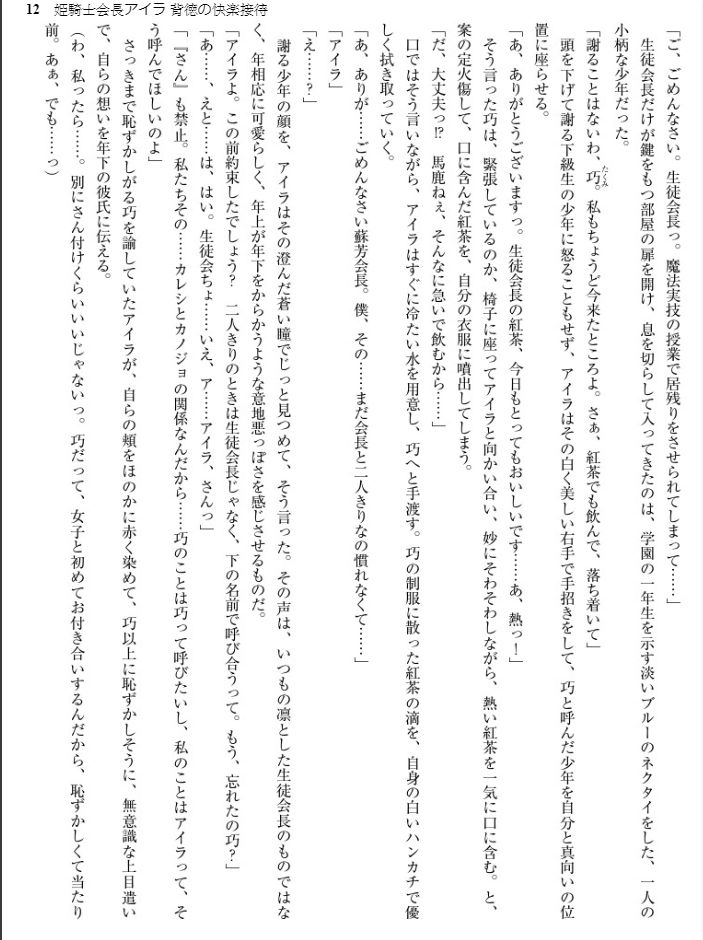 12 姫騎士会長アイラ 背徳の快楽接待
「ご、ごめんなさい。生徒会長っ。魔法実技の授業で居残りをさせられてしまって……」
生徒会長だけが鍵をもつ部屋の扉を開け、息を切らして入ってきたのは、学園の一年生を示す淡いブルーのネクタイをした、一人の
小柄な少年だった。
「謝ることはないわ、巧。私もちょうど今来たところよ。さぁ、紅茶でも飲んで、落ち着いて」
頭を下げて謝る下級生の少年に怒ることもせず、アイラはその白く美しい右手で手招きをして、巧と呼んだ少年を自分と真向いの位
置に座らせる。
「あ、ありがとうございますっ。生徒会長の紅茶、今日もとってもおいしいです……あ、熱っ！」
そう言った巧は、緊張しているのか、椅子に座ってアイラと向かい合い、妙にそわそわしながら、熱い紅茶を一気に口に含む。と、
案の定火傷して、口に含んだ紅茶を、自分の衣服に噴出してしまう。
「だ、大丈夫っ!?　馬鹿ねぇ、そんなに急いで飲むから……」
口ではそう言いながら、アイラはすぐに冷たい水を用意し、巧へと手渡す。巧の制服に散った紅茶の滴を、自身の白いハンカチで優
しく拭き取っていく。
「あ、ありが……ごめんなさい蘇芳会長。僕、その……まだ会長と二人きりなの慣れなくて……」
「アイラ」
「え……？」
謝る少年の顔を、アイラはその澄んだ蒼い瞳でじっと見つめて、そう言った。その声は、いつもの凛とした生徒会長のものではな
く、年相応に可愛らしく、年上が年下をからかうような意地悪っぽさを感じさせるものだ。
「アイラよ。この前約束したでしょう？　二人きりのときは生徒会長じゃなく、下の名前で呼び合うって。もう、忘れたの巧？」
「あ……、えと……は、はい。生徒会ちょ……いえ、ア……アイラ、さんっ」
「『さん』も禁止。私たちその……カレシとカノジョの関係なんだから……巧のことは巧って呼びたいし、私のことはアイラって、そ
う呼んでほしいのよ」
さっきまで恥ずかしがる巧を諭していたアイラが、自らの頬をほのかに赤く染めて、巧以上に恥ずかしそうに、無意識な上目遣い
で、自らの想いを年下の彼氏に伝える。
（わ、私ったら……。別にさん付けくらいいいじゃないっ。巧だって、女子と初めてお付き合いするんだから、恥ずかしくて当たり
前。あぁ、でも……っ）